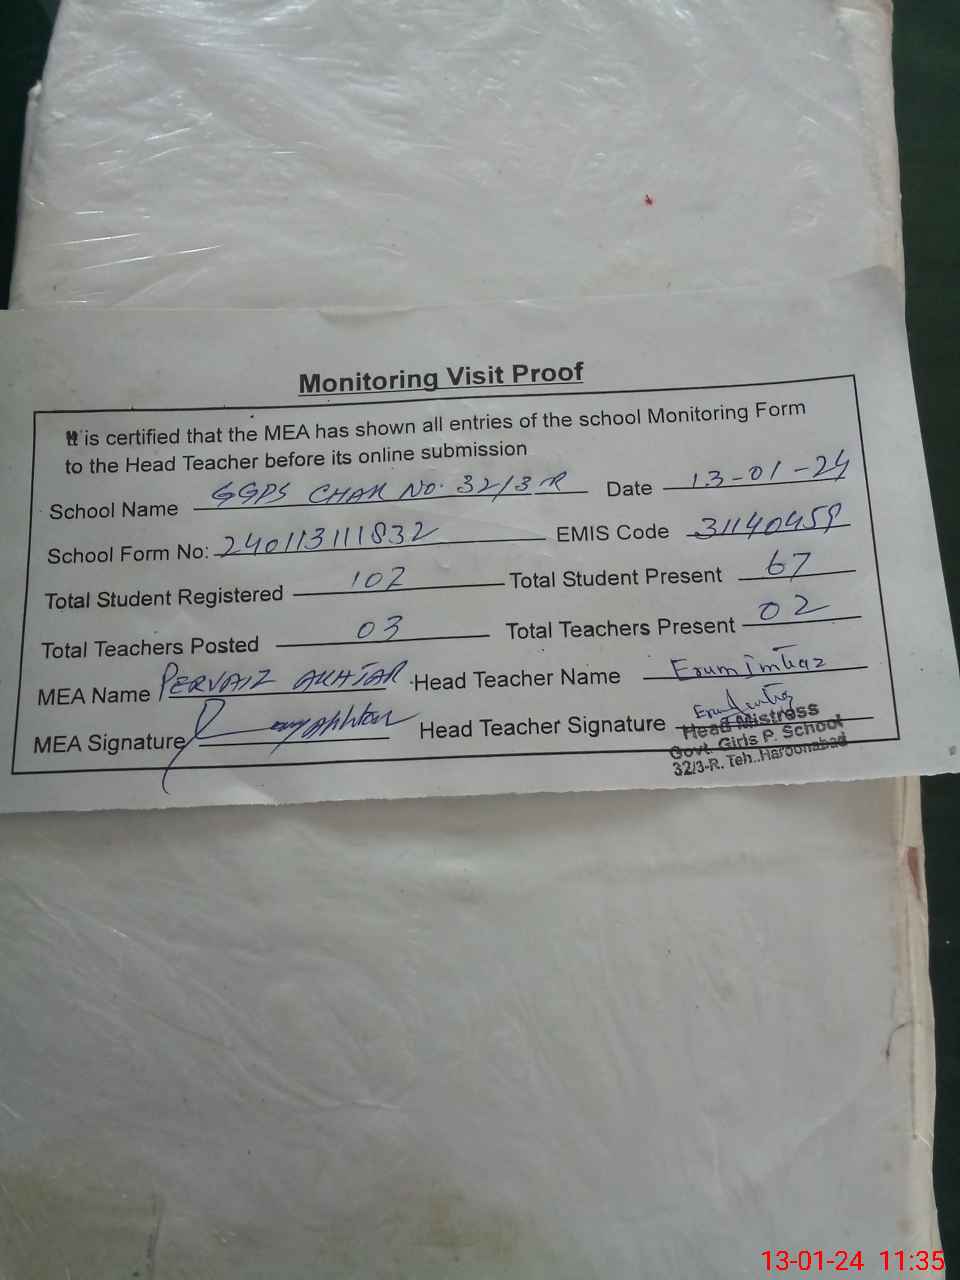 Monitoring Visit Proof
It is certified that the MEA has shown all entries of the school Monitoring Form
to the Head Teacher before its online submission
School Name GGPS CHAK NO. 32/3-R Date 13-01-24
School Form No: 240113111832 EMIS Code 31140459
Total Student Registered 102 Total Student Present 67
Total Teachers Posted 03 Total Teachers Present 02
MEA Name PERVAIZ AKHTAR Head Teacher Name Erum Imtiaz
MEA Signature Head Teacher Signature Erum Imtiaz
Head Mistress
Govt. Girls P. School
32/3-R. Teh..Haroonabad
13-01-24 11:35